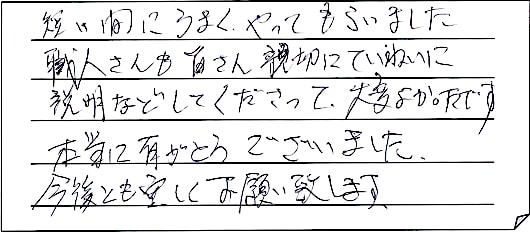 短い間にうまくやってもらいました
職人さんも皆さん親切にていねいに
説明などしてくださって、大変よかったです
本当に有がとうございました、
今後とも宜しくお願い致します、